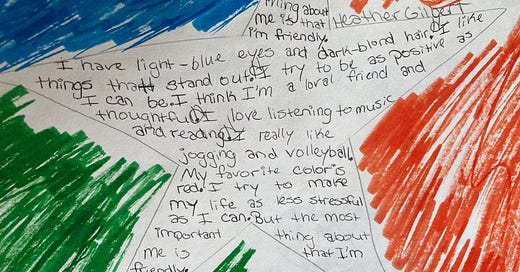 thing about
me is that Heather Gilbert
i'm friendly.
I have light-blue eyes and dark-blond hair. I like
things that stand out. I try to be as positive as
I can be. I think I'm a loyal friend and
thoughtful. I love listening to music
and reading. I really like
jogging and volleyball.
My favorite color is
red. I try to make
my life as less stressful
as I can. But the most
important thing about
me is that I'm
friendly.